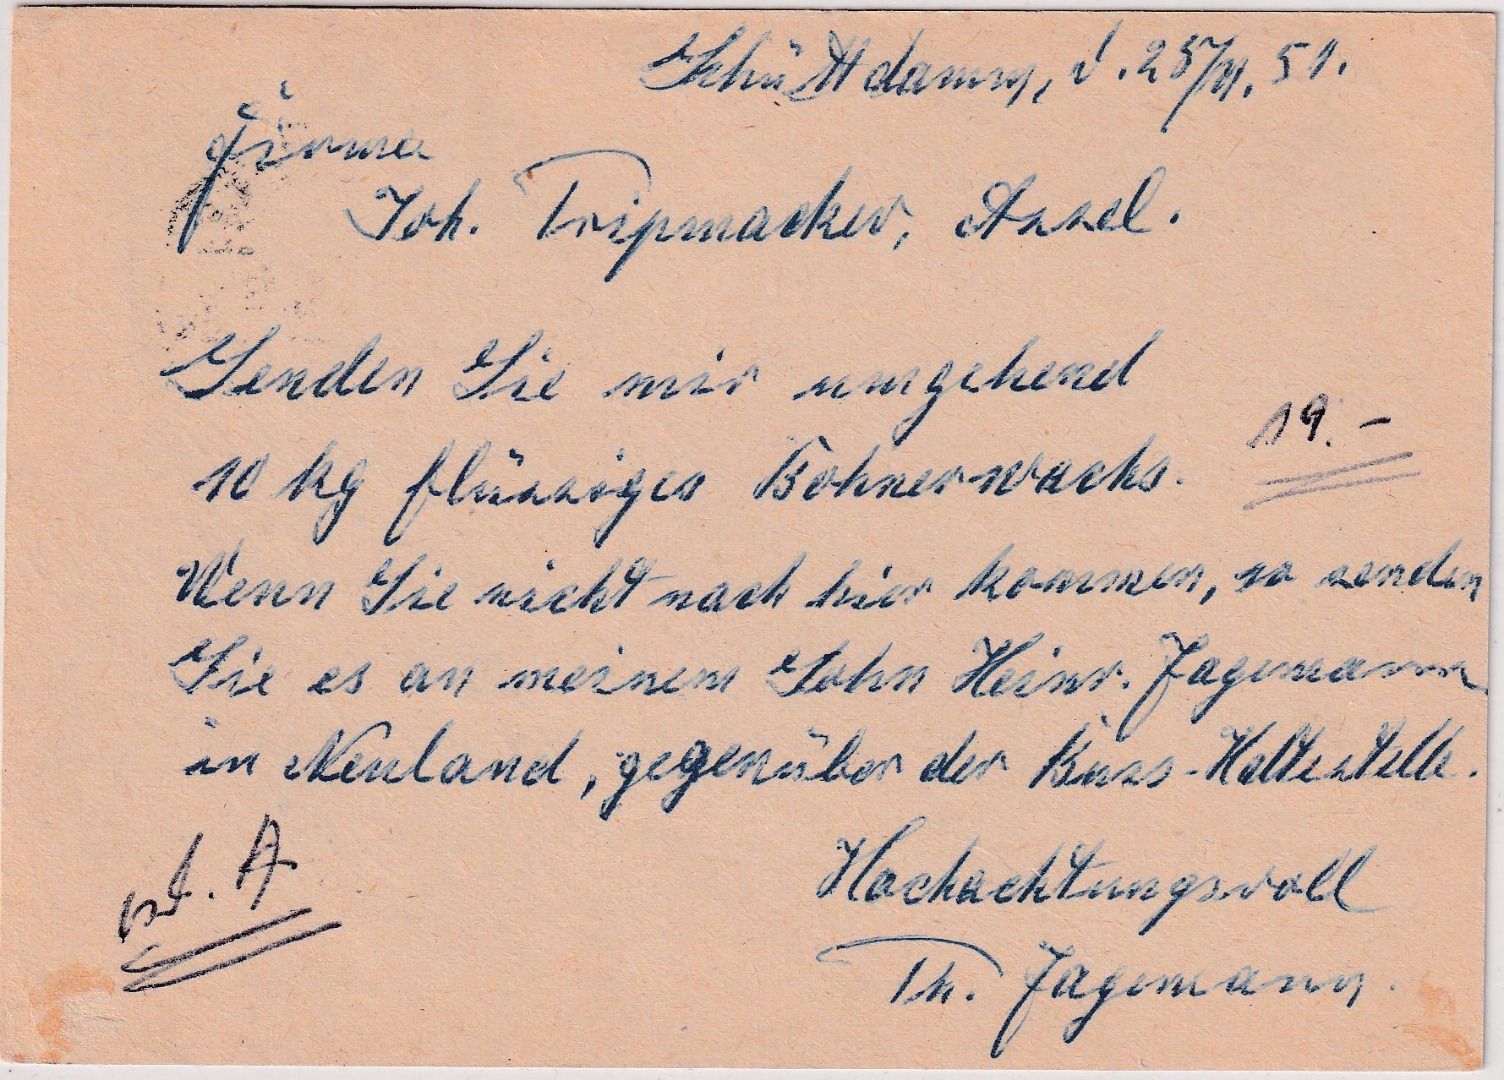 Schüttdamm, d. 25/VI. 51.
Firma
Joh. Tripmacker, Assel.
Senden Sie mir umgehend
10 kg flüssiges Bohnerwachs.
19.-
Wenn Sie nicht nach hier kommen, so senden
Sie es an meinem Sohn Heinr. Jagemann
in Neuland, gegenüber der Buss-Haltestelle.
Hochachtungsvoll
Th. Jagemann.